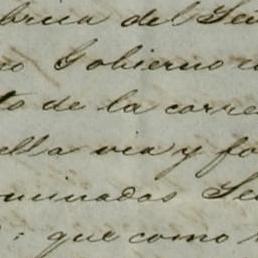 bria del Se
no Gobierno
to de la corre
ella via y fo
ominados Se
: que como